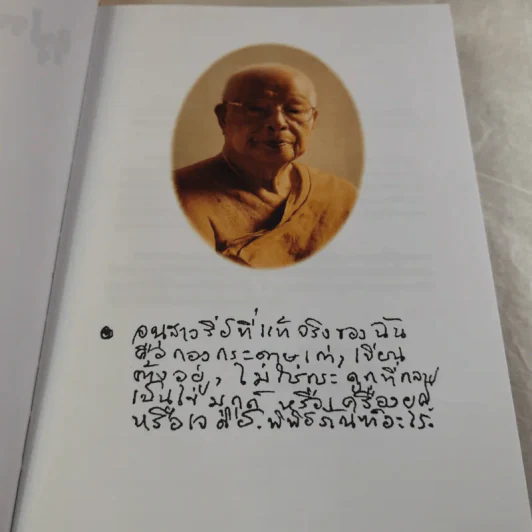 อนุสาวรีย์ที่แท้จริงของฉัน
คือกองกระดาษเก่า, เขียน
ค้างอยู่, ไม่ใช่กระดูกที่กลาย
เป็นไข่มุกด์ หรือเครื่องยศ
หรือเจดีย์. พิพิธภัณฑ์อะไร.